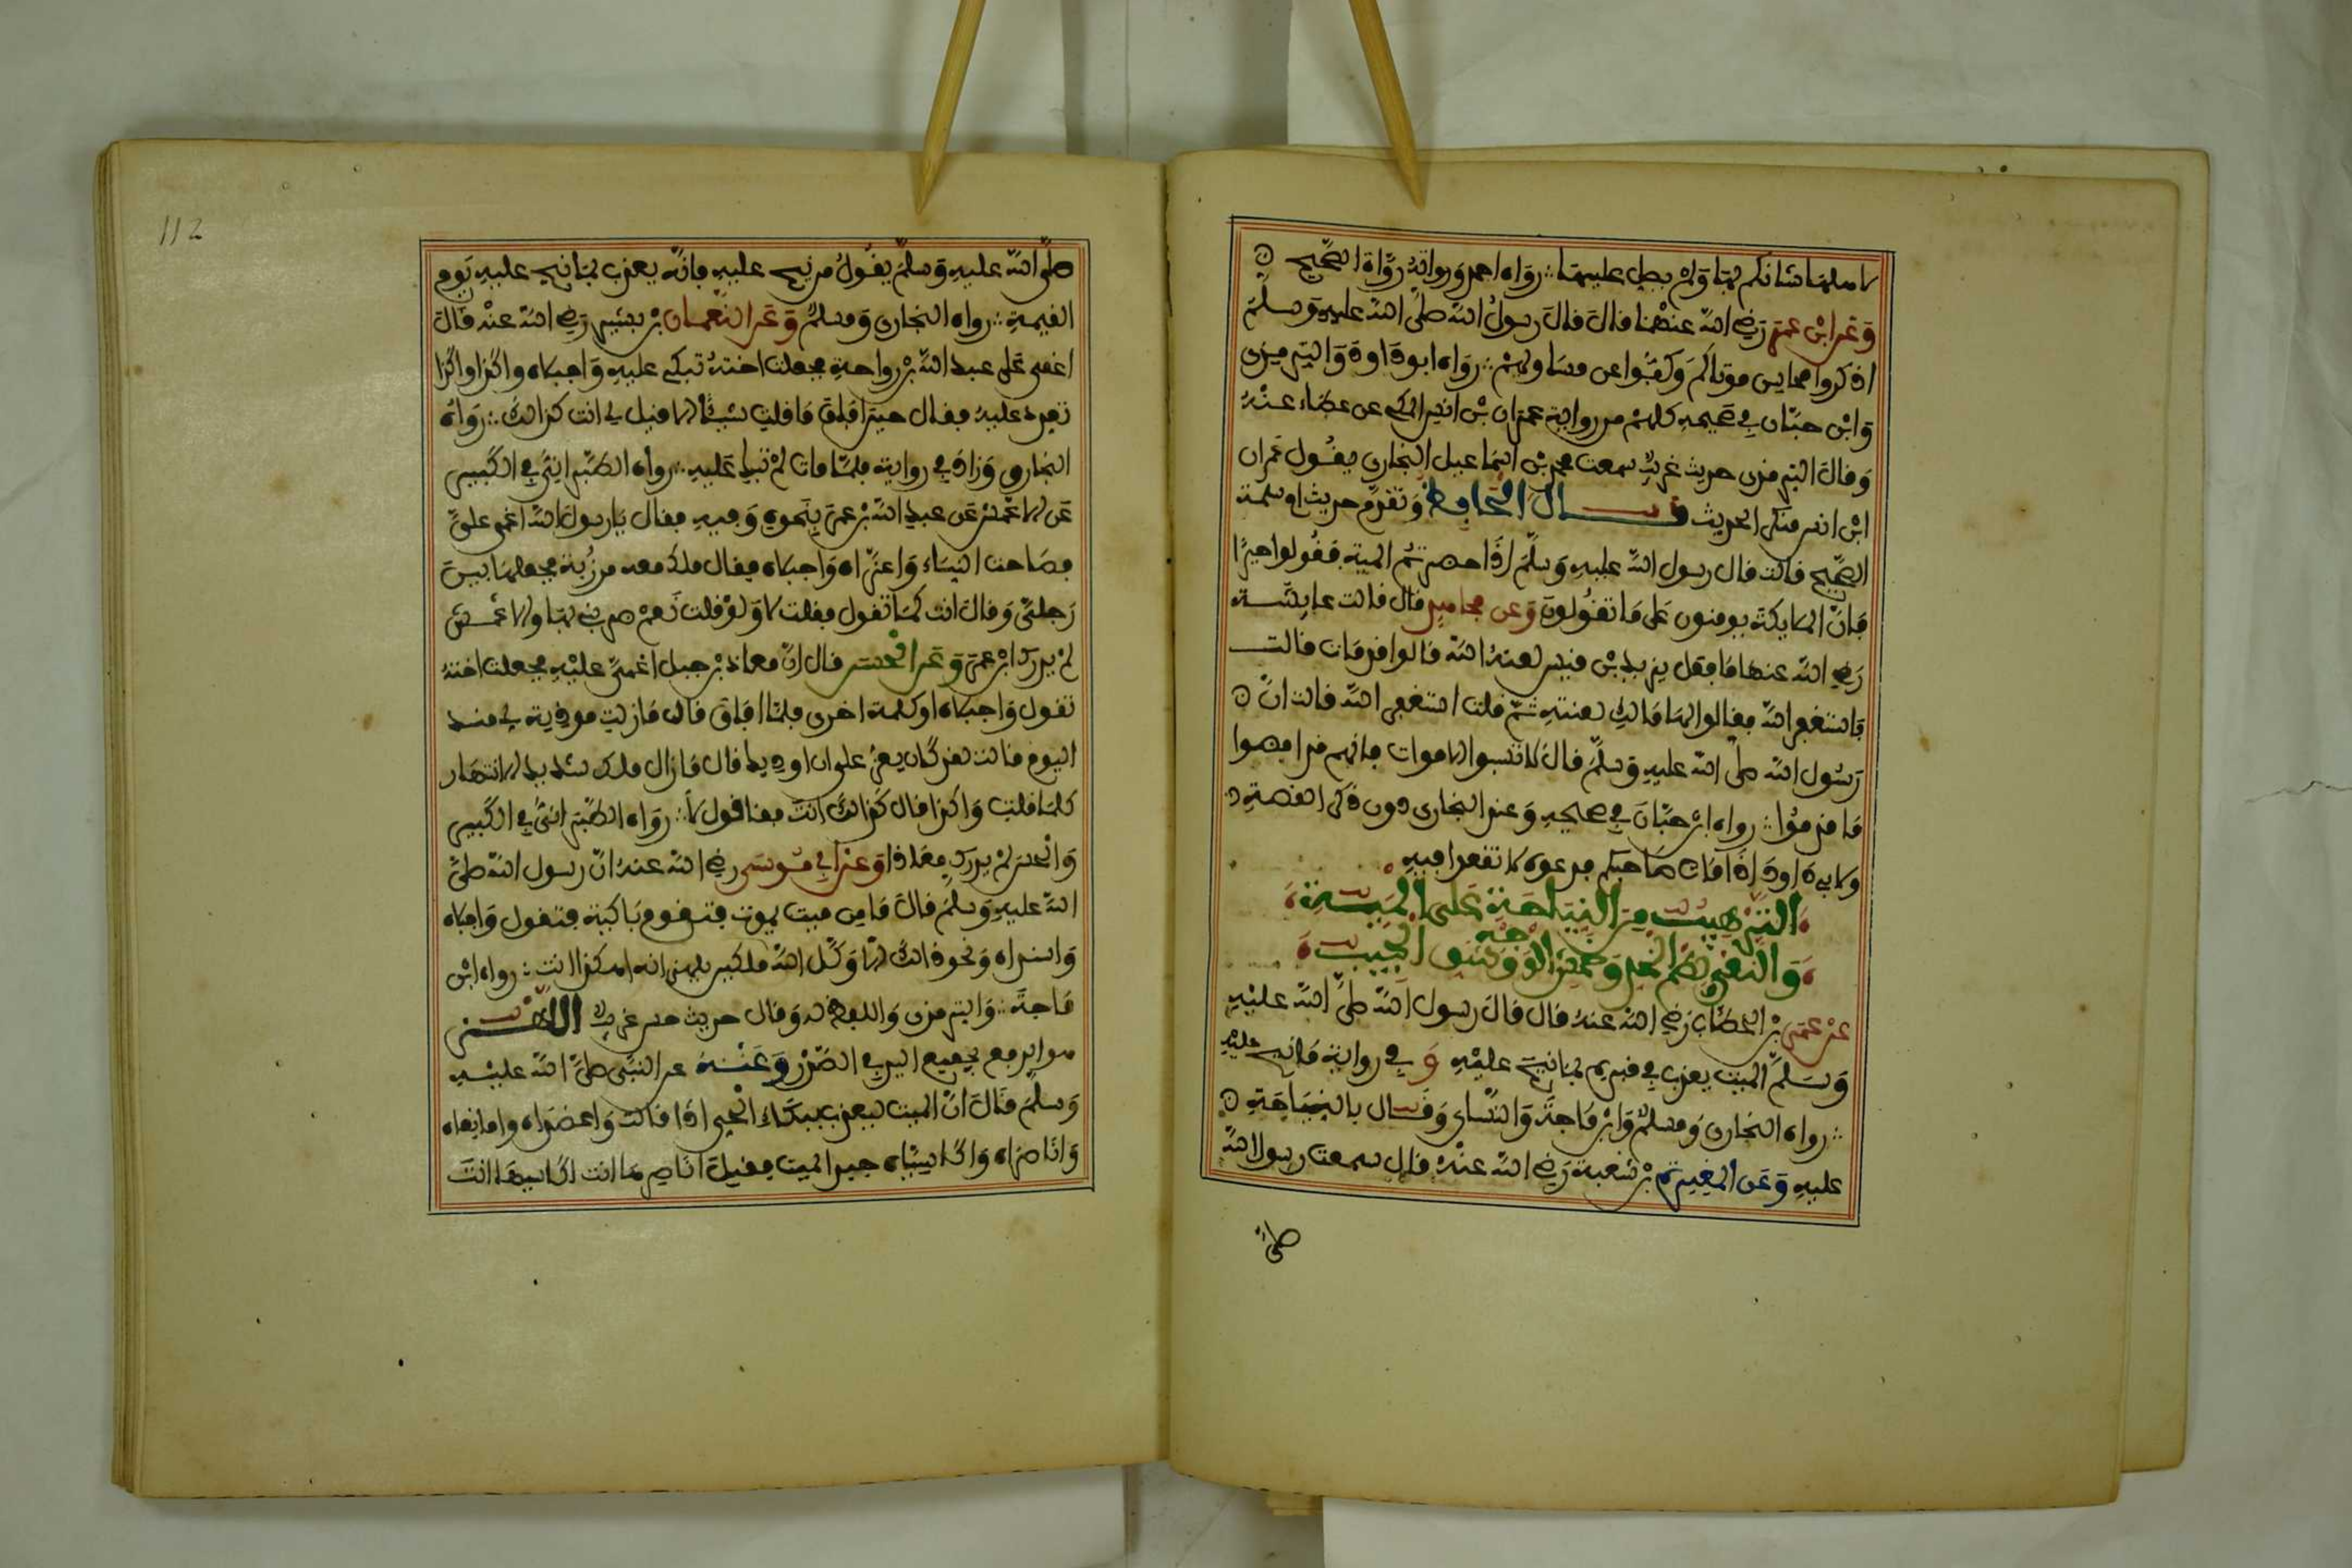 لا سلمنا شانكم لها ولم يصل عليها ∴ رواه احمد ورواته رواة الصحيح
وعن ابن عمر رضي الله عنهما قال قال رسول الله صلى الله عليه وسلم
اذكروا محاسن موتاكم وكفوا عن مساويهم ∴ رواه ابو داود والترمذي
وابن حبان في صحيحه كلهم من رواية عمران بن انس المكي عن عطاء عنه
وقال الترمذي حديث غريب سمعت محمد بن اسماعيل البخاري يقول عمران
ابن انس منكر الحديث قال الحافظ وتقدم حديث ام سلمة
الصحيح قالت قال رسول الله عليه وسلم اذا حضرتم الميت فقولوا خيرا
فان الملايكة يومنون على ما تقولون وعن مجاهد قال قالت عايشة
رضي الله عنها ما فعل يزيد بن قيس لعنه الله قالوا قد مات قالت
فاستغفر الله فقالوا لها مالك لعنته ثم قلت استغفر الله قالت ان
رسول الله صلى الله عليه وسلم قال لا تسبوا الاموات فانهم قد افضوا
ما قدموا ∴ رواه ابن حبان في صحيحه وعند البخاري دون ذكر القصة
ولابي داود اذا مات صاحبكم فدعوه لا تقعوا فيه
الترهيب من النياحة على الميت
والنعي ولطم الخد وخمش الوجه وشق الجيب
عن عمر بن الخطاب رضي الله عنه قال قال رسول الله صلى الله عليه
وسلم الميت يعذب في قبره بما نيح عليه و في رواية ما نيح عليه
∴ رواه البخاري ومسلم وابن ماجة والنساي وقال بالنياحة
عليه وعن المغيرة بن شعبة رضي الله عنه قال سمعت رسول الله
صلى
112
صلى الله عليه وسلم يقول من نيح عليه فانه يعذب بما نيح عليه يوم
القيمة ∴ رواه البخاري ومسلم وعن النعمان بن بشير رضي الله عنه قال
اغمي على عبد الله بن رواحة فجعلت اخته تبكي عليه واجبلاه واكذا واكذا
تعدد عليه فقال حين افاق ما قلت شيئا الا قيل لي انت كذلك ∴ رواه
البخاري وزاد في رواية فلما مات لم تبك عليه ∴ رواه الطبراني في الكبير
عن الاعمش عن عبد الله بن عمر بنحوه وفيه فقال يا رسول الله اغمي علي
فصاحت النساء واعزاه واجبلاه فقال ملك معه مرزبة فجعلها بين
رجلي وقال انت كما تقول فقلت لا ولو قلت نعم ضربني بها والاعمش
لم يدرك ابن عمر وعن الحسن قال ان معاذ بن جبل اغمي عليه فجعلت اخته
تقول واجبلاه او كلمة اخرى فلما افاق قال ما زلت موذية لي منذ
اليوم قالت لقد كان يعز علي ان اوذيك قال ما زال ملك شديد الانتهار
كلما قلت واكذا قال كذلك انت فاقول لا ∴ رواه الطبراني في الكبير
والحسن لم يدرك معاذا وعن ابي موسى رضي الله عنه ان رسول الله صلى
الله عليه وسلم قال ما من ميت يموت فتقوم باكية فتقول واجبلاه
واسنداه ونحو ذلك الا وكل الله ملكين يلهزانه اهكذا انت ∴ رواه ابن
ماجة ∴ والترمذي واللفظ له وقال حديث حسن غريب اللهز
هو الدفع بجميع اليد في الصدر وعنه عن النبي صلى الله عليه
وسلم قال ان الميت ليعذب ببكاء الحي اذا قالت واعضداه وامانعاه
واناصراه واكاسياه جبذ الميت فقيل اناصرها انت اكاسيها انت